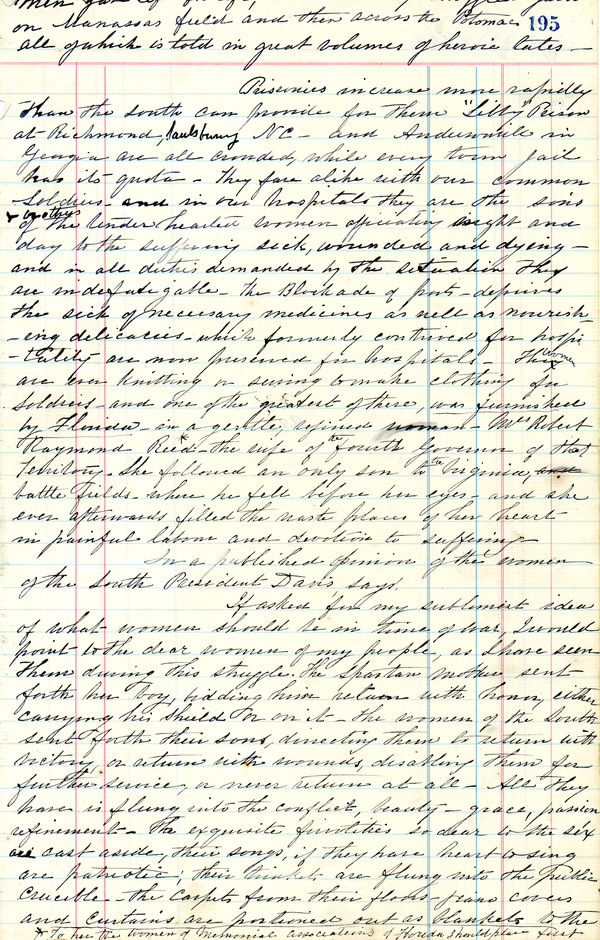 195
on Manassas field and then across the Potomac
all of which is told in great volumes of heroic tales —
Prisoners increase more rapidly
than the south can provide for them "Libby" Prison
at Richmond, Saulsbury NC — and Andersonville in
Georgia are all crowded, while every town jail
has its quota — They fare alike with our common
Soldiers — and in our hospitals they are the sons
+ brothers
of the tender hearted women officiating night and
day to the suffering sick, wounded and dying —
and in all duties demanded by the situation they
are indefatigable — The Blockade of ports — deprives
the sick of necessary medicines as well as nourish
-ing delicacies — which formerly contrived for hospi
-tality are now preserved for hospitals — They women
are ever knitting or sewing to make clothing for
soldiers — and one of the greatest of these, was furnished
by Florida — in a gentle, refined woman — Mrs Robert
Raymond Reid — the wife of the fourth Governor of that
Territory — She followed an only son to the Virginia, and
battle fields — where he fell before her eyes — and she
ever afterwards filled the waste places of her heart
in painful labors and devotion to suffering —
In a published opinion of the women
of the South President Davis says!
If asked for my sublimest idea
of what women should be in time of war, I would
point to the dear women of my people, as I have seen
them during this struggle. The Spartan mother sent
forth her boy, bidding him return with honor, either
carrying his shield or on it — The women of the South
sent forth their sons, directing them to return with
victory or return with wounds, disabling them for
further service, or never return at all — All they
have is flung into the conflict, beauty — grace, passion
refinement — The exquisite frivolities so dear to the sex
are cast aside, their songs, if they have heart to sing
are patriotic; their trinkets are flung into the Public
crucible — the carpets from their floors — piano covers
and curtains are portioned out as blankets to the
+ To her the women of Memorial associations of Florida should place first